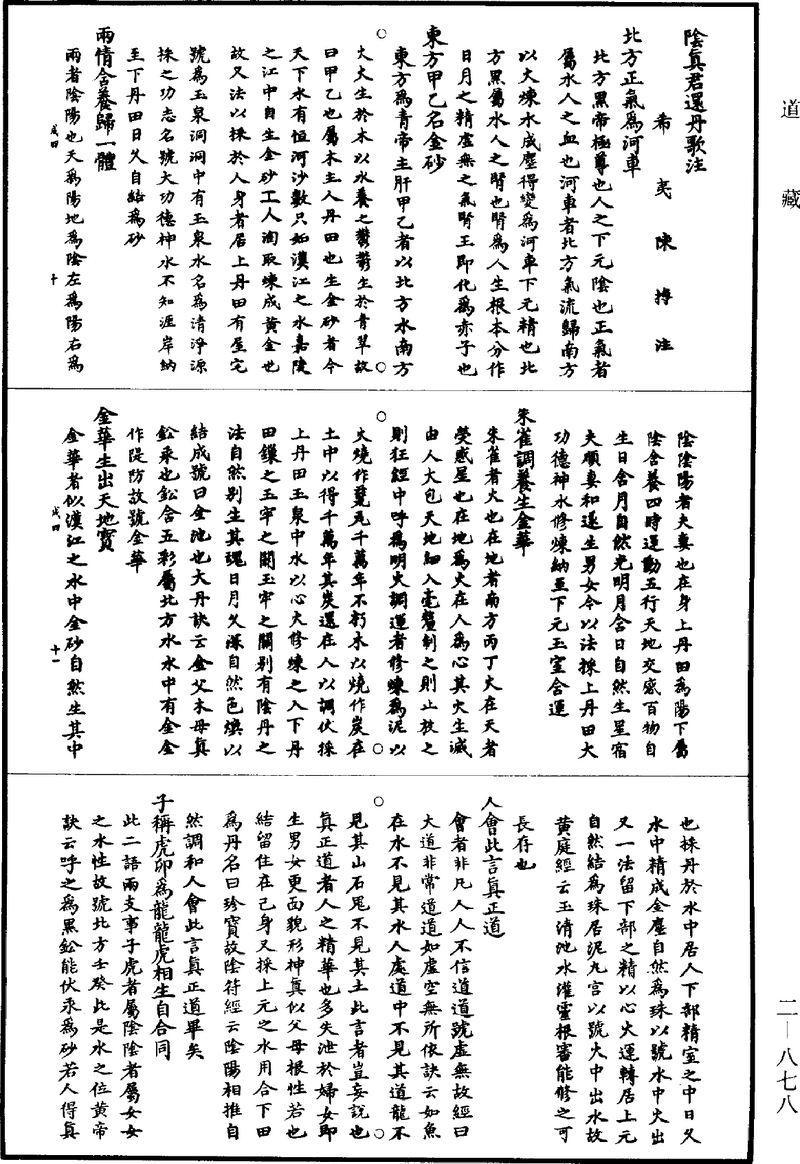 道藏
陰眞君還丹歌注
希夷陳摶注
北方正氣爲河車
北方黑帝極尊也人之下元陰也正氣者
屬水人之血也河車者北方氣流歸南方
以火煉水成塵得變爲河車下元精也北
方黑屬水人之腎也腎爲人生根本分作
日月之精虛無之氣腎王即化爲赤子也
東方甲乙名金砂
東方爲青帝主肝甲乙者以北方水南方
火火生於木以水養之鬱鬱生於青翠故
曰甲乙也屬木主人丹田也生金砂者今
天下水有恒河沙數只如漢江之水嘉陵
之江中自生金砂工人淘取煉成黃金世
故又法以採於人身者居上丹田有屋宅
號爲玉泉洞洞中有玉泉水名爲清淨源
採之功志名號大功德神水不知涯岸納
至下丹田日久自結爲砂
兩情含養歸一體
兩者陰陽也天爲陽地爲陰左爲陽右爲
成四
十
陰陰陽者夫妻也在身上丹田爲陽下屬
陰含養四時運動五行天地交感百物自
生日含月自然光明月含日自然生星宿
夫順妻和遂生男女今以法採上丹田大
功德神水修煉納至下元玉室含運
朱雀調養生金華
朱雀者火也在地者南方丙丁火在天者
熒惑星也在地爲火在人爲心其火生滅
由人大包天地細入毫釐制之則止放之
則狂經中呼爲明火調運者修煉爲泥以
火燒作瓷瓦千萬年不朽木以燒作炭在
土中以得千萬年其炭還在人以調伏採
上丹田玉泉中水以心火修煉之入下丹
田鏁之玉牢之關玉牢之關別有陰丹之
法自然別生其瑰日月久深自然色煥以
結成號曰金池也大丹訣云金父木母眞
鈆汞也鈆含五彩屬北方水水中有金金
作隄防故號金華
金華生出天地寶
金華者似漢江之水中金砂自然生其中
成四
十一
也採丹於水中居人下部精室之中日久
水中精成金塵自然爲珠以號水中火出
又一法留下部之精以心火運轉居上元
自然結爲珠居泥丸宮以號火中出水故
黃庭經云玉清池水灌靈根審能修之可
長存也
人會此言眞正道
會者非凡人人不信道道號虛無故經曰
大道非常道道如虛空無所依訣云如魚
在水不見其水人處道中不見其道龍不
見其山石鬼不見其土此言者豈妄說也
眞正道者人之精華也多失泄於婦女即
生男女更面貌形神眞似父母根性若也
結留住在己身又採上元之水用合下田
爲丹名曰珍寶故陰符經云陰陽相推自
然調和人會此言眞正道畢矣
子稱虎卯爲龍龍虎相生自合同
此二語兩支事子虎者屬陰陰者屬女女
之水性故號北方壬癸此是水之位黃帝
訣云呼之爲黑鈆能伏汞爲砂若人得眞
二—八七八